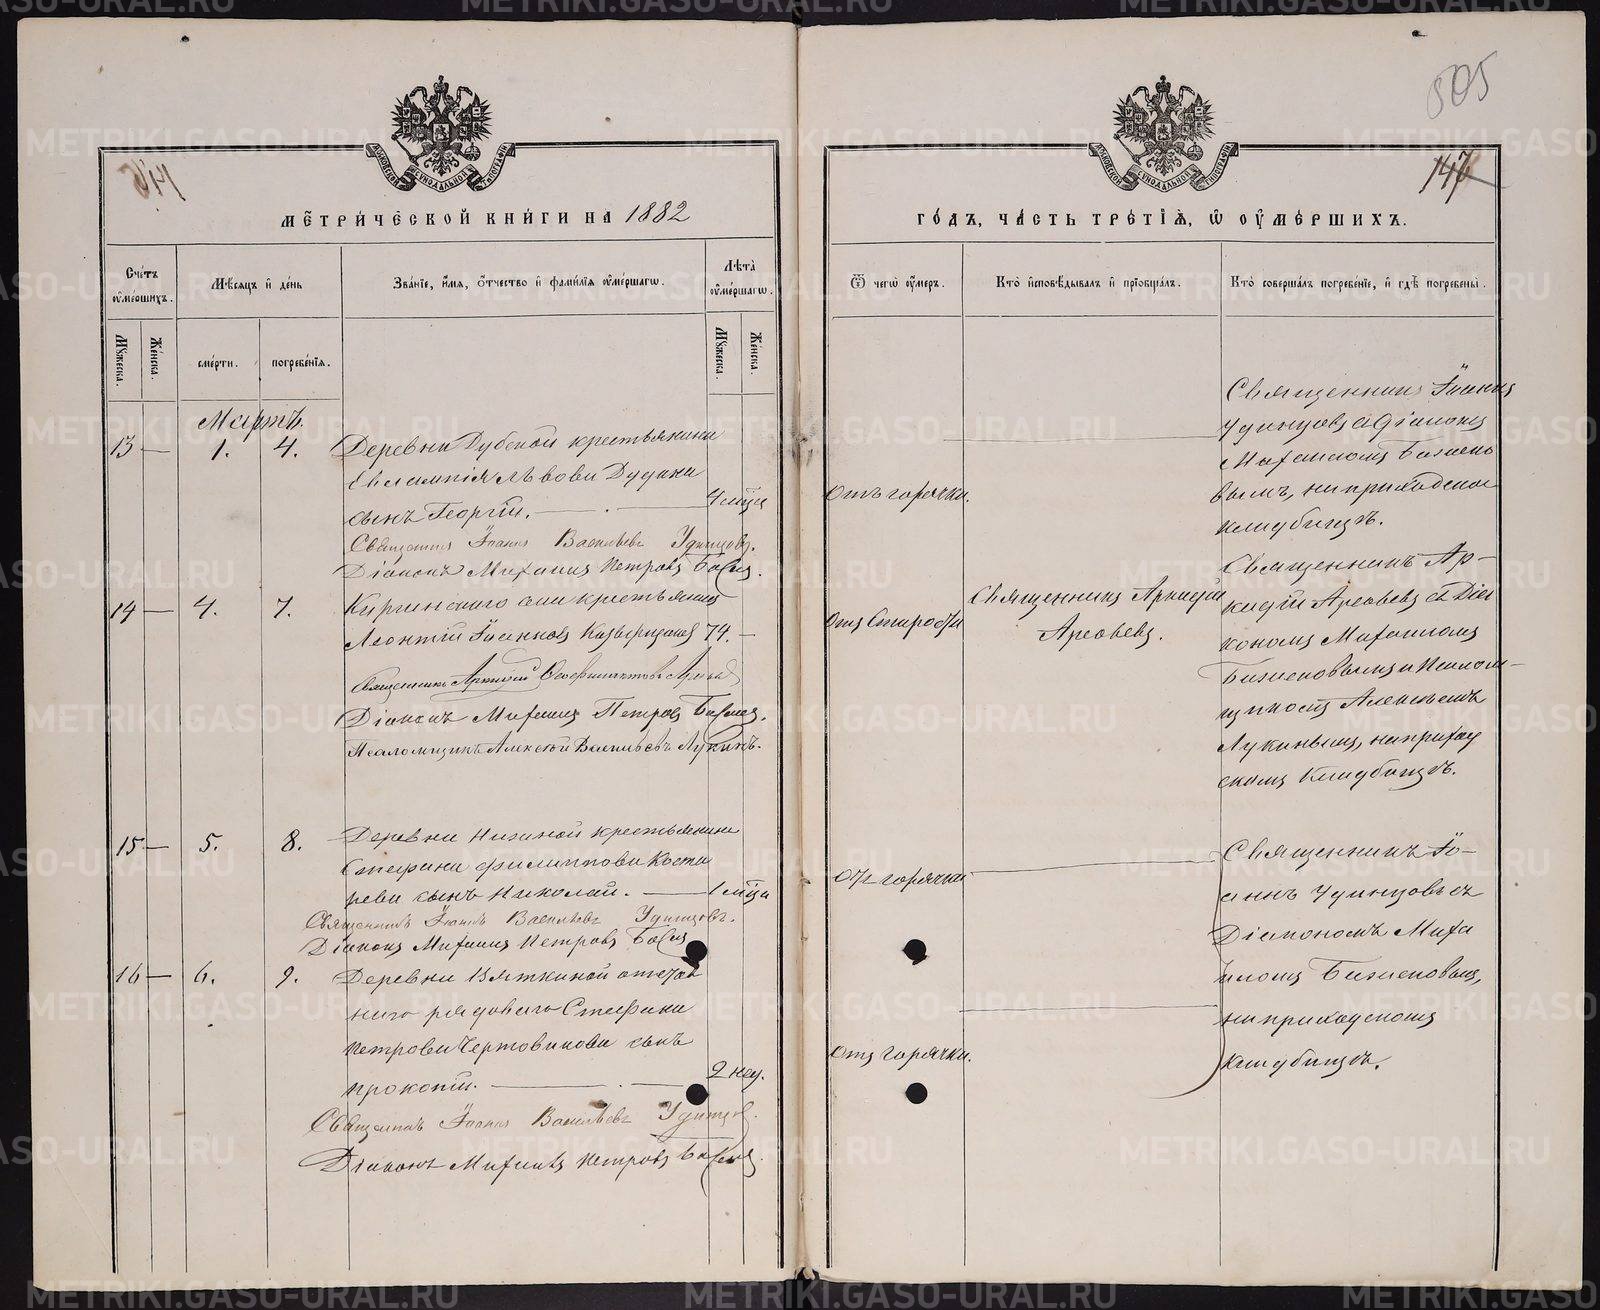 505
147
МЕТРИЧЕСКОЙ КНИГИ НА 1882
Счетъ умершихъ.
Мѣсяцъ и день
Званіе, имя, отчество и фамилія умершаго.
Лѣта умершаго.
Мужеска.
Женска.
смерти.
погребенія.
Мужеска.
Женска.
Мартъ.
13 — 1. 4. Деревни Дубской крестьянина
Евлампія Львова Дудина
сынъ Георгій. — 4 мѣц
Священникъ Іоаннъ Васильевъ Удинцовъ.
Діаконъ Михаилъ Петровъ
14 — 4. 7. Киргинскаго села крестьянинъ
Леонтій Іоанновъ 74. —
Священникъ Аркадій
Діаконъ Михаилъ Петровъ
Псаломщикъ Алексѣй Васильевъ Лукинъ.
15 — 5. 8. Деревни Низиной крестьянина
Стефана Филиппова
сынъ Николай. — 1 мѣц
Священникъ Іоаннъ Васильевъ Удинцовъ.
Діаконъ Михаилъ Петровъ
16 — 6. 9. Деревни Вяткиной отстав
наго рядоваго Стефана
Петрова Чертовикова сынъ
Прокопій. — 2 нед.
Священникъ Іоаннъ Васильевъ Удинцов.
Діаконъ Михаилъ Петровъ
ГОДЪ, ЧАСТЬ ТРЕТІЯ, О УМЕРШИХЪ.
Отъ чего умеръ.
Кто исповѣдывалъ и пріобщалъ.
Кто совершалъ погребеніе, и гдѣ погребены.
Отъ горячки.
Священникъ Іоаннъ
Удинцовъ съ Діакономъ
Михаиломъ
вымъ, на приходскомъ
кладбищѣ.
Отъ старости
Священникъ Аркадій
Арефьевъ.
Священникъ Ар-
кадій Арефьевъ съ Діа
кономъ Михаиломъ
и Псалом-
щикомъ Алексѣемъ
Лукинымъ, на приход
скомъ кладбищѣ.
Отъ горячки
Священникъ Іо-
аннъ Удинцовъ съ
Діакономъ Миха
иломъ
на приходскомъ
кладбищѣ.
Отъ горячки.